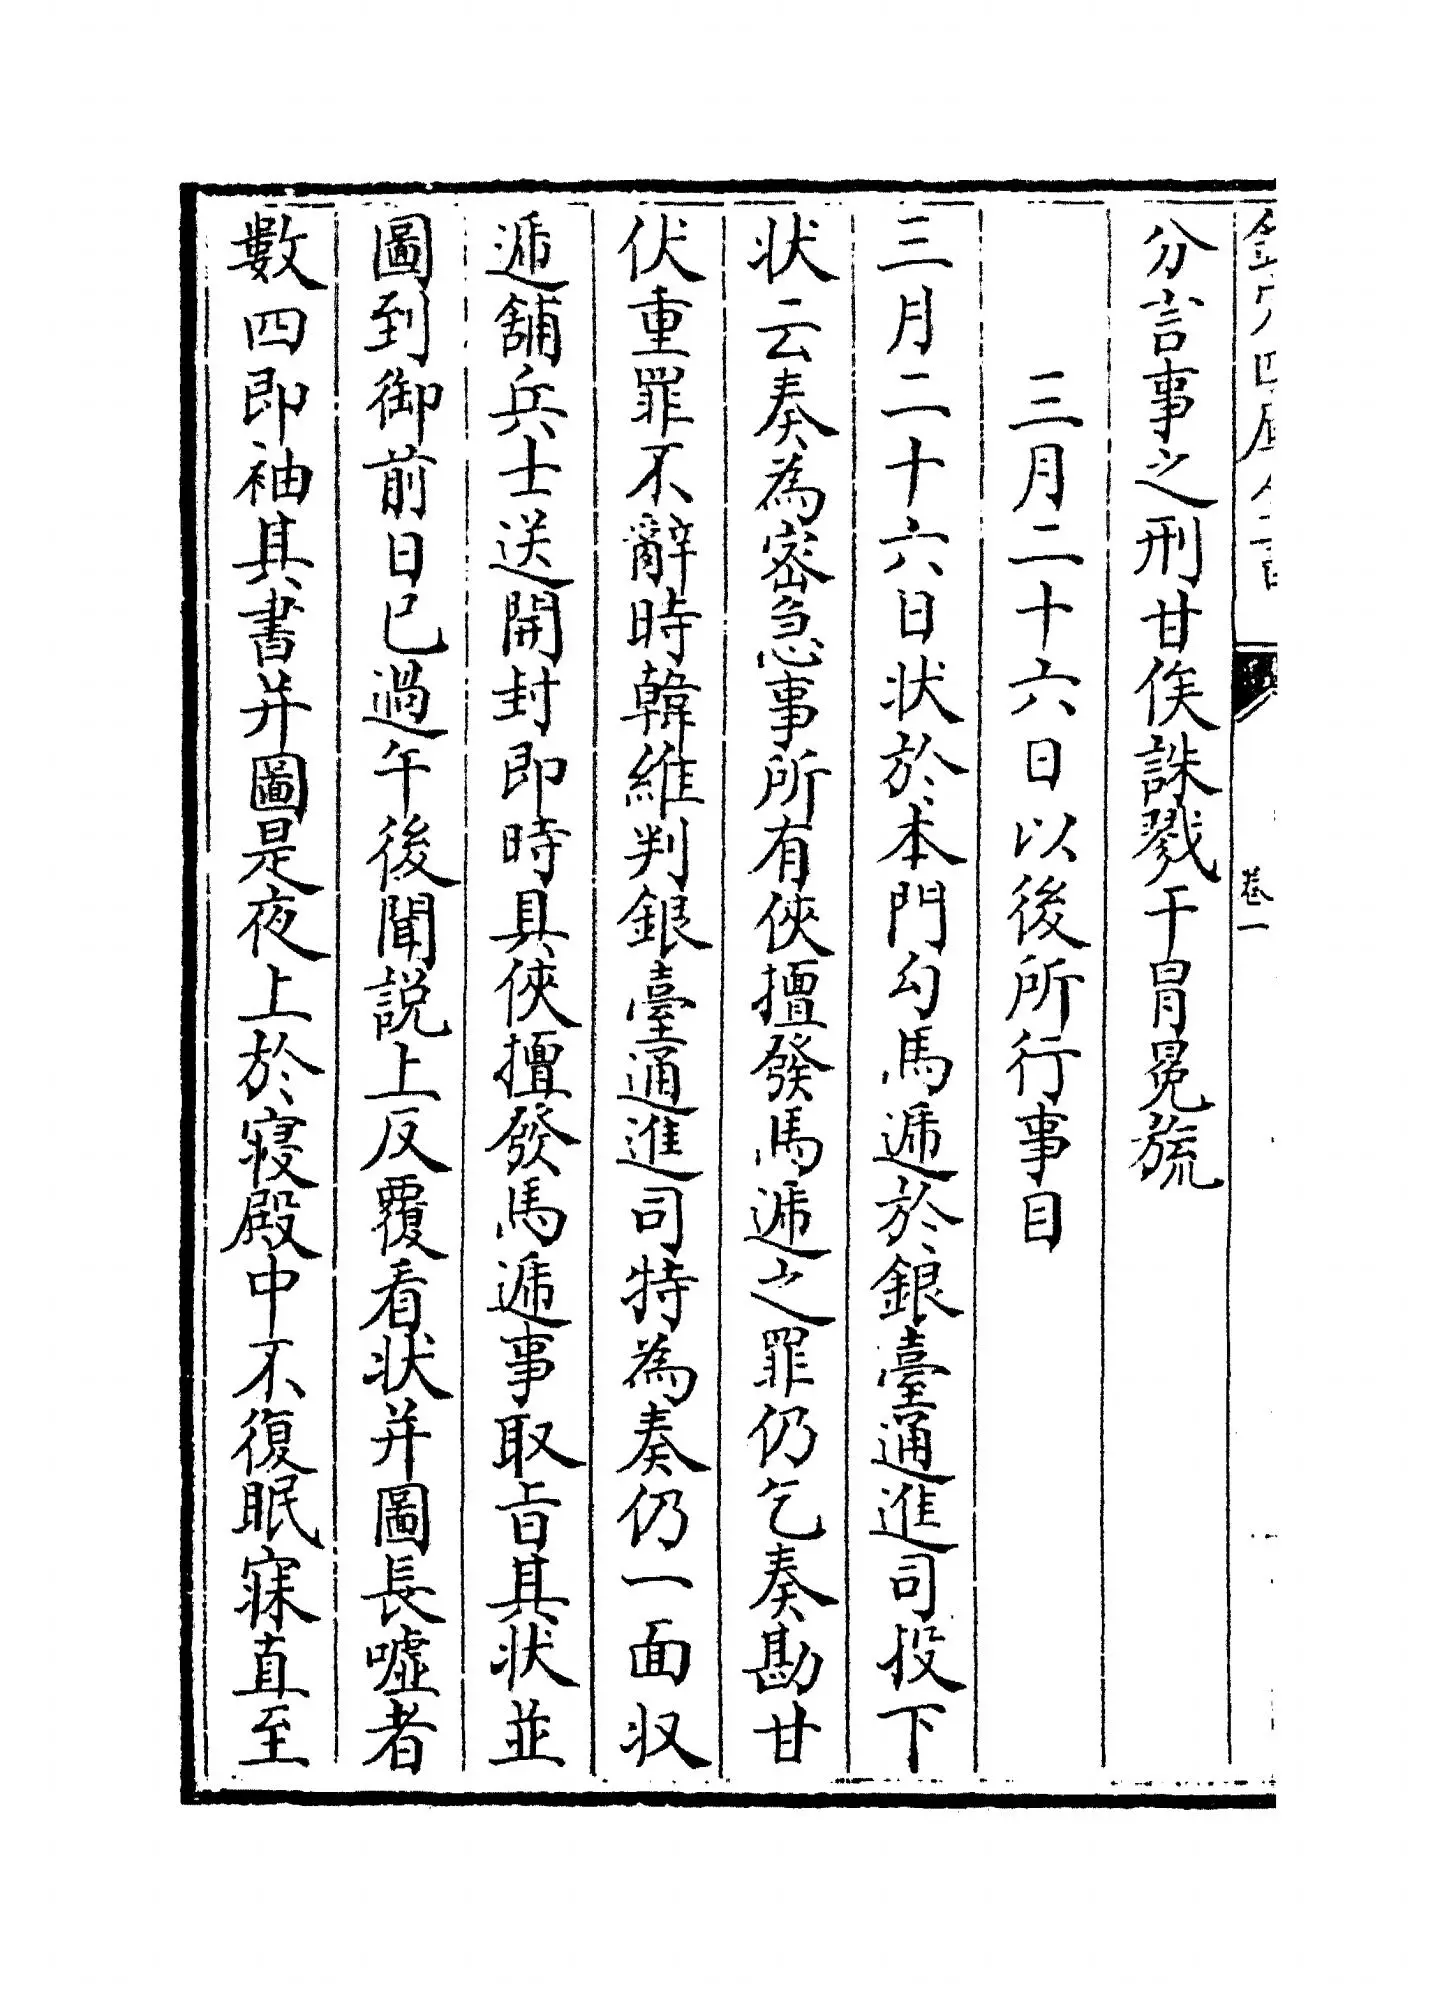 欽定四庫全書
卷一
分言事之刑甘俟誅戮干冒冕旒
三月二十六日以後所行事目
三月二十六日状於本門勾馬遞於銀臺通進司投下
状云奏為密急事所有俠擅發馬遞之罪仍乞奏勘甘
伏重罪不辭時韓維判銀臺通進司特為奏仍一面収
遞舖兵士送開封即時具俠擅發馬遞事取旨其状並
圖到御前日已過午後聞説上反覆看状并圖長噓者
數四即袖其書并圖是夜上於寢殿中不復眠寐直至